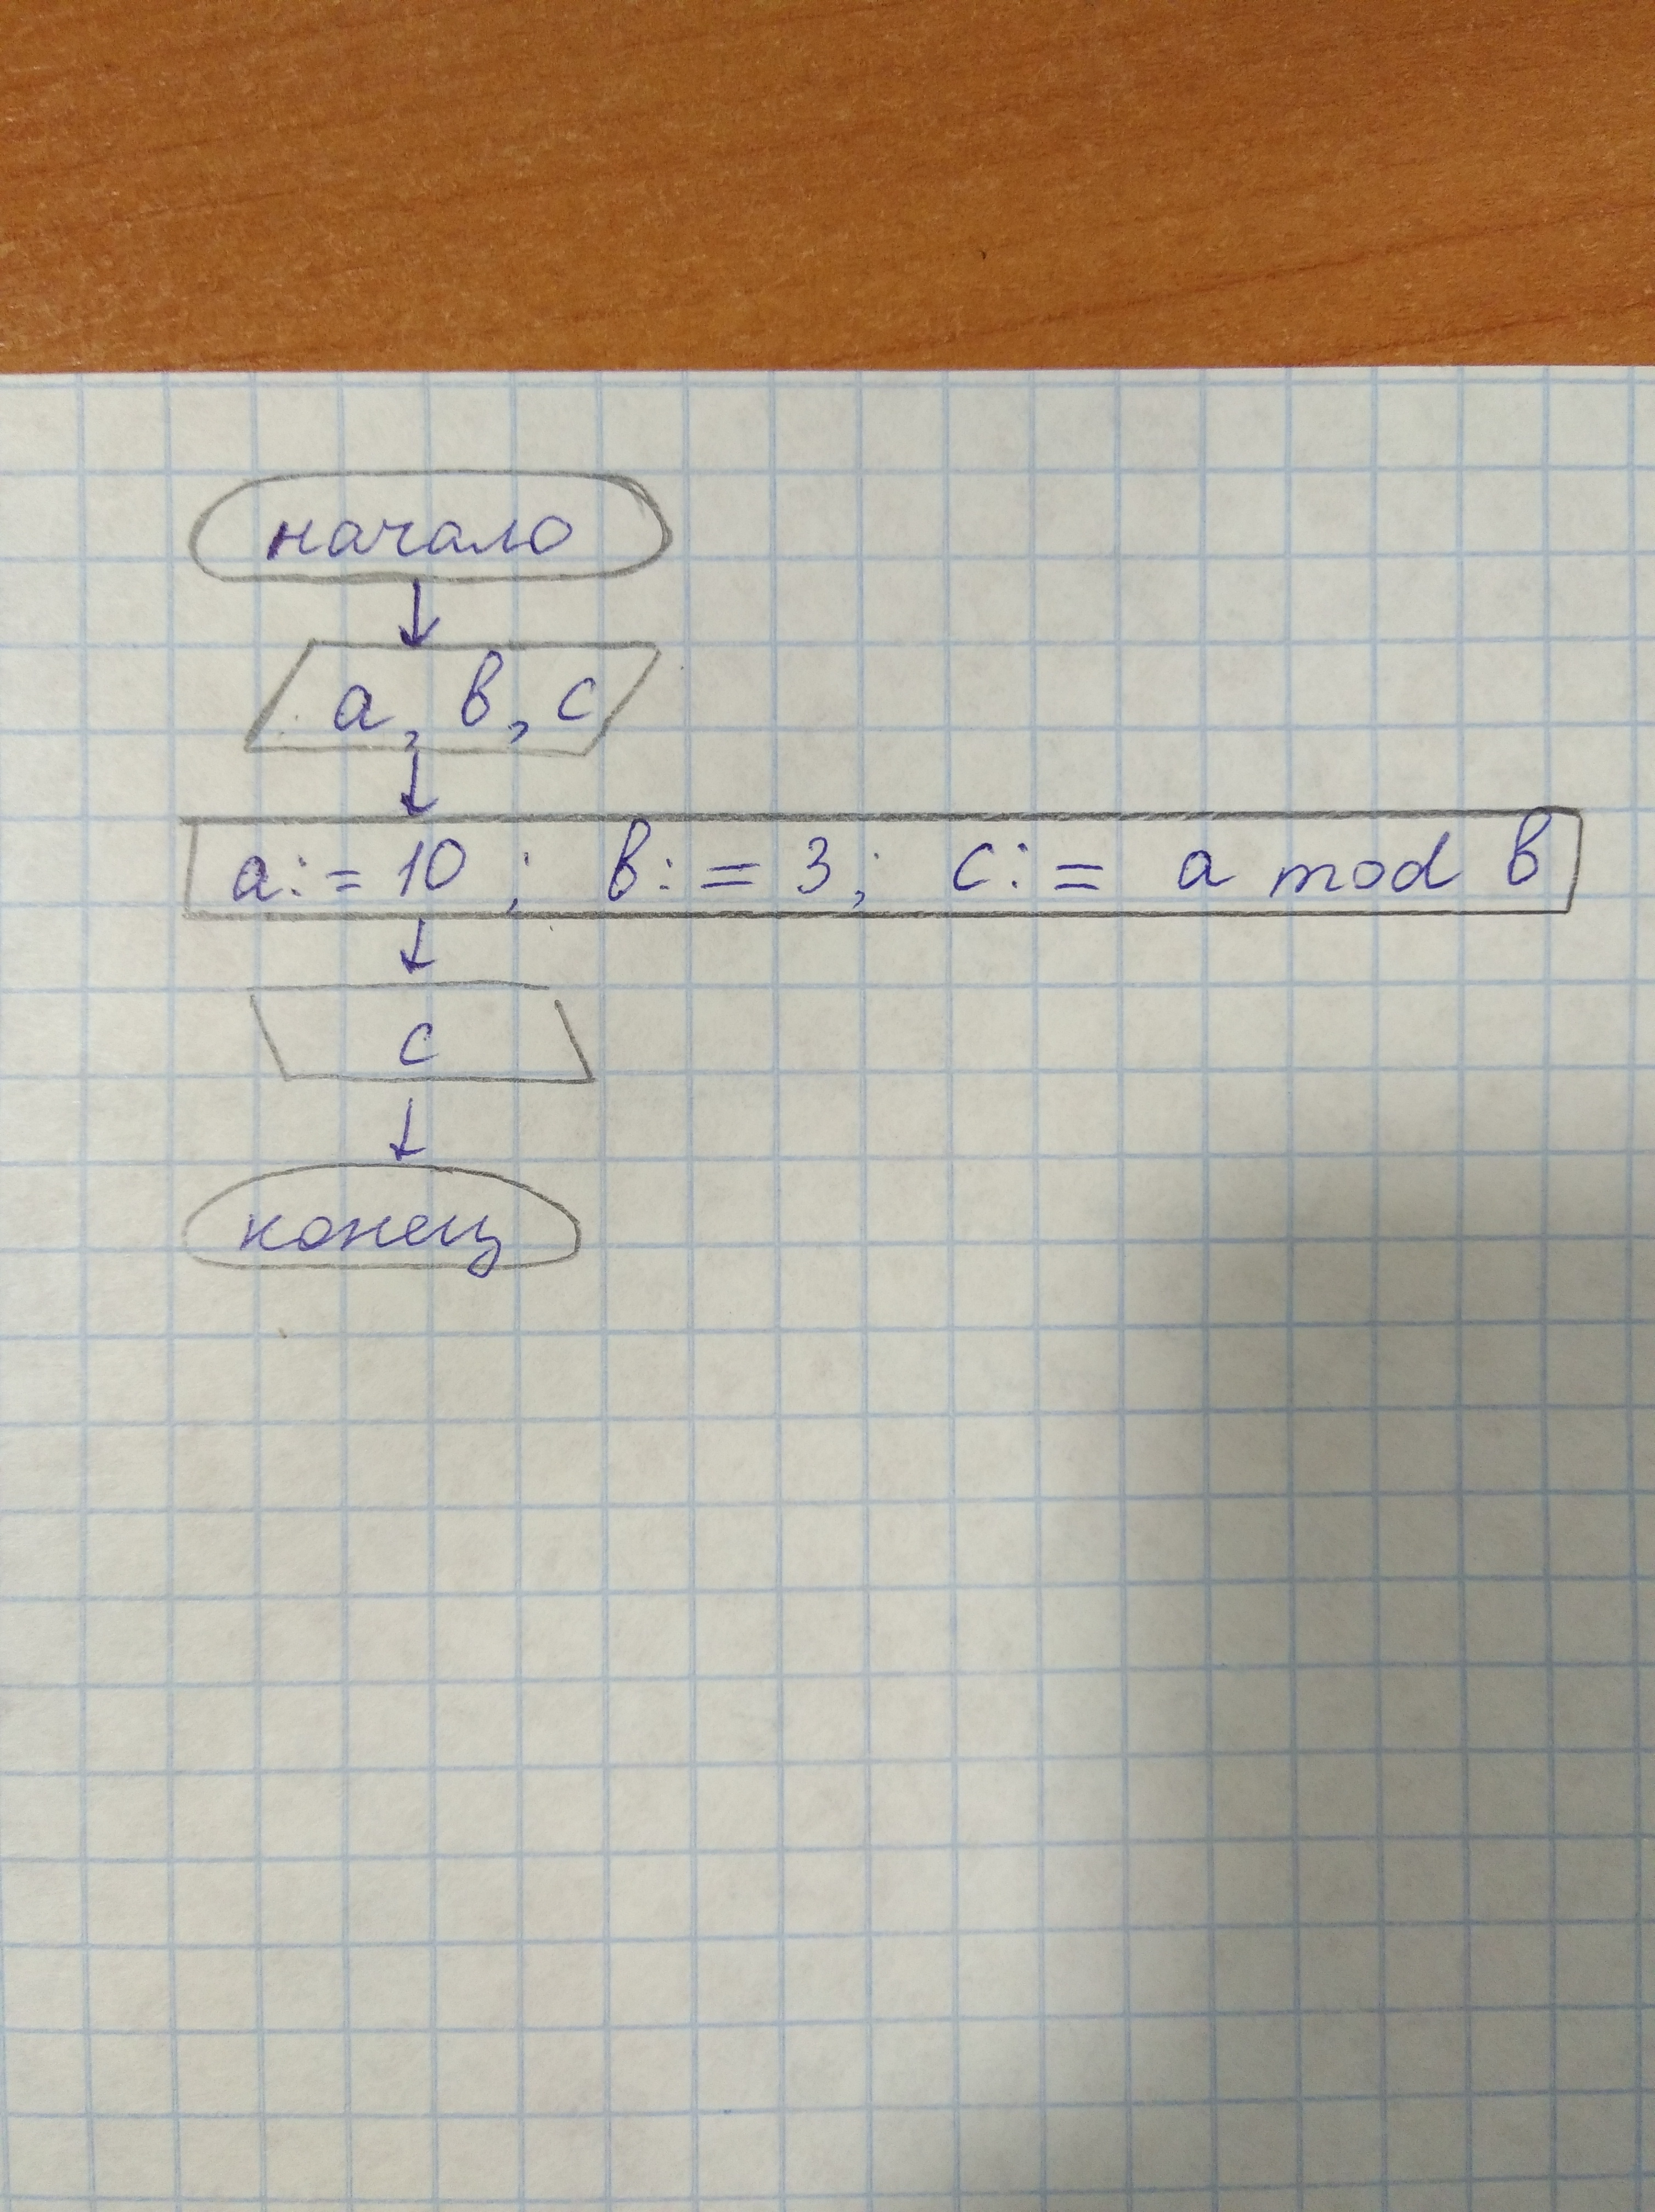 начало
а, в, с
а:= 10 ; в: = 3; с: = а mod в
с
конец